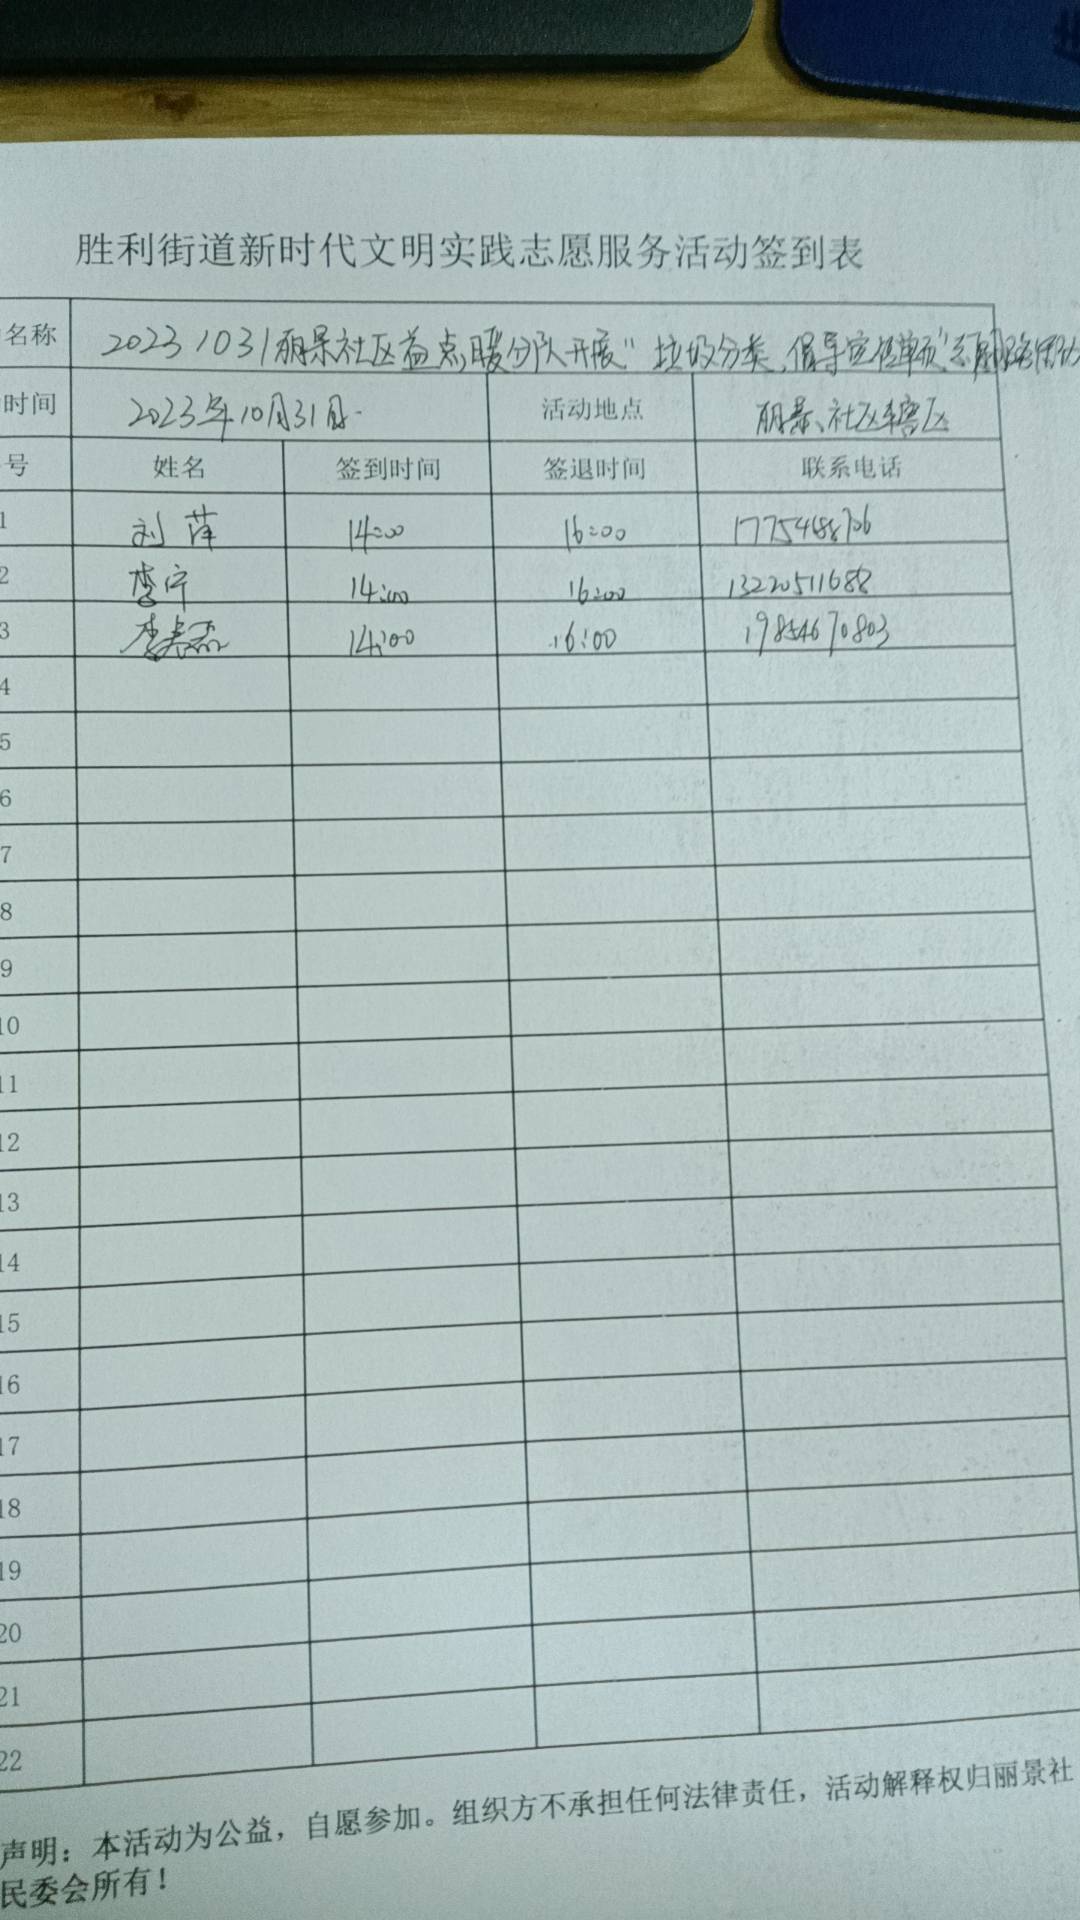 胜利街道新时代文明实践志愿服务活动签到表
名称 20231031丽景社区益点暖分队开展"垃圾分类,倡导
时间 2023年10月31日 活动地点 丽景社区辖区
号 姓名 签到时间 签退时间 联系电话
1 刘萍 14:00 16:00
2 李宁 14:00 16:00 13220511688
3 李 14:00 16:00 19854670803
4
5
6
7
8
9
10
11
12
13
14
15
16
17
18
19
20
21
22
声明：本活动为公益，自愿参加。组织方不承担任何法律责任，活动解释权归丽景社
民委会所有！